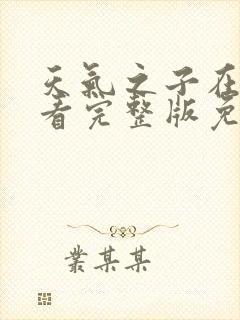 天氣之子在
看完整版免
叢某某